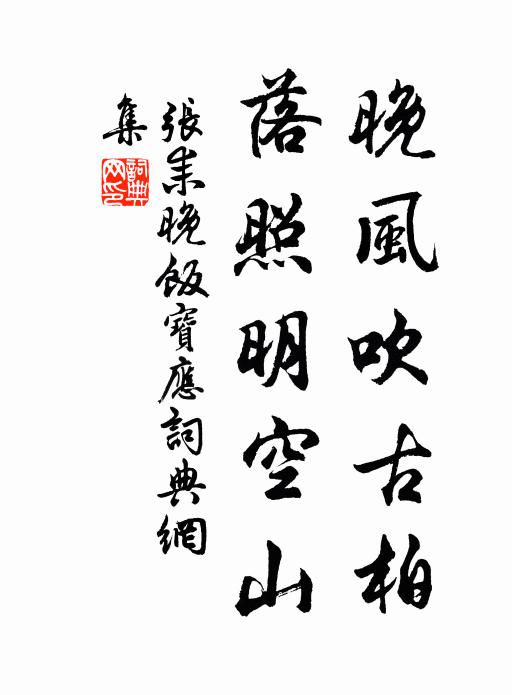 晚風吹古柏
落照明空山
張耒晚飯寶應詞典網
集
詞典
网印